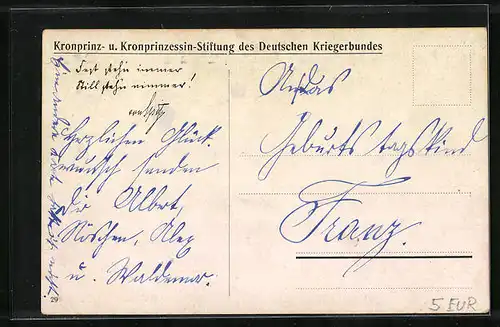 Kronprinz- u. Kronprinzessin-Stiftung des Deutschen Kriegerbundes
Fest stehn immer
Still stehn nimmer!
Herzlichen Glück-
wunsch senden
Dir Albert,
Röschen, Alex
u. Waldemar.
An das
Geburtstagskind
Franz.
29
5 EUR